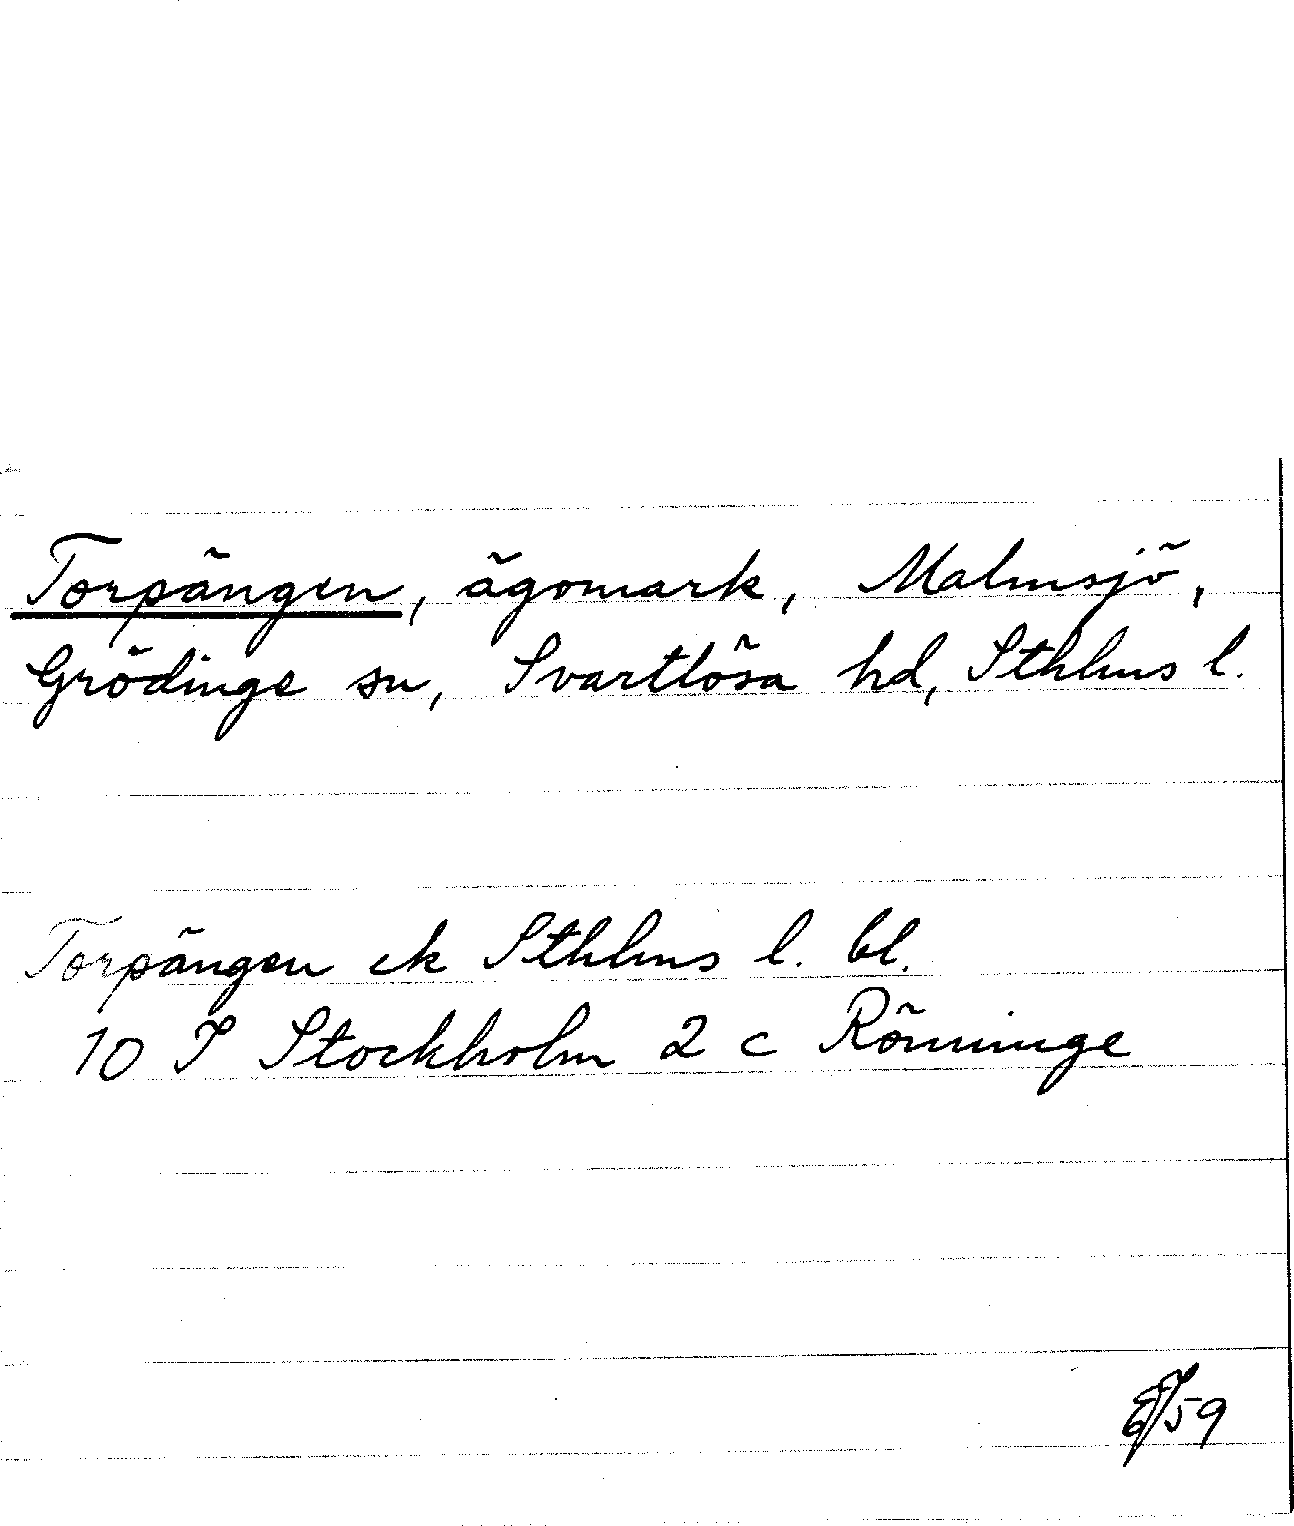 Torpängen, ägomark, Malmsjö,
Grödinge sn, Svartlösa hd, Sthlms l.
Torpängen ek Sthlms l. bl.
10 I Stockholm 2 c Rönninge
59